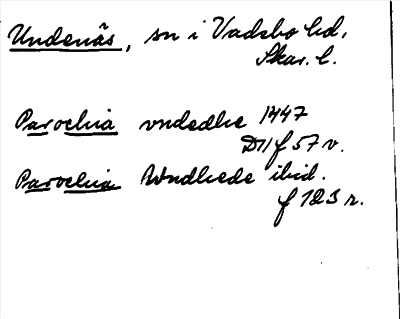 Undenäs, sn i Vadsbo hd,
Skar. l.
Parochia vndedhe 1447
D11 f 57 v.
Parochia Wndhede ibid.
f 123 r.